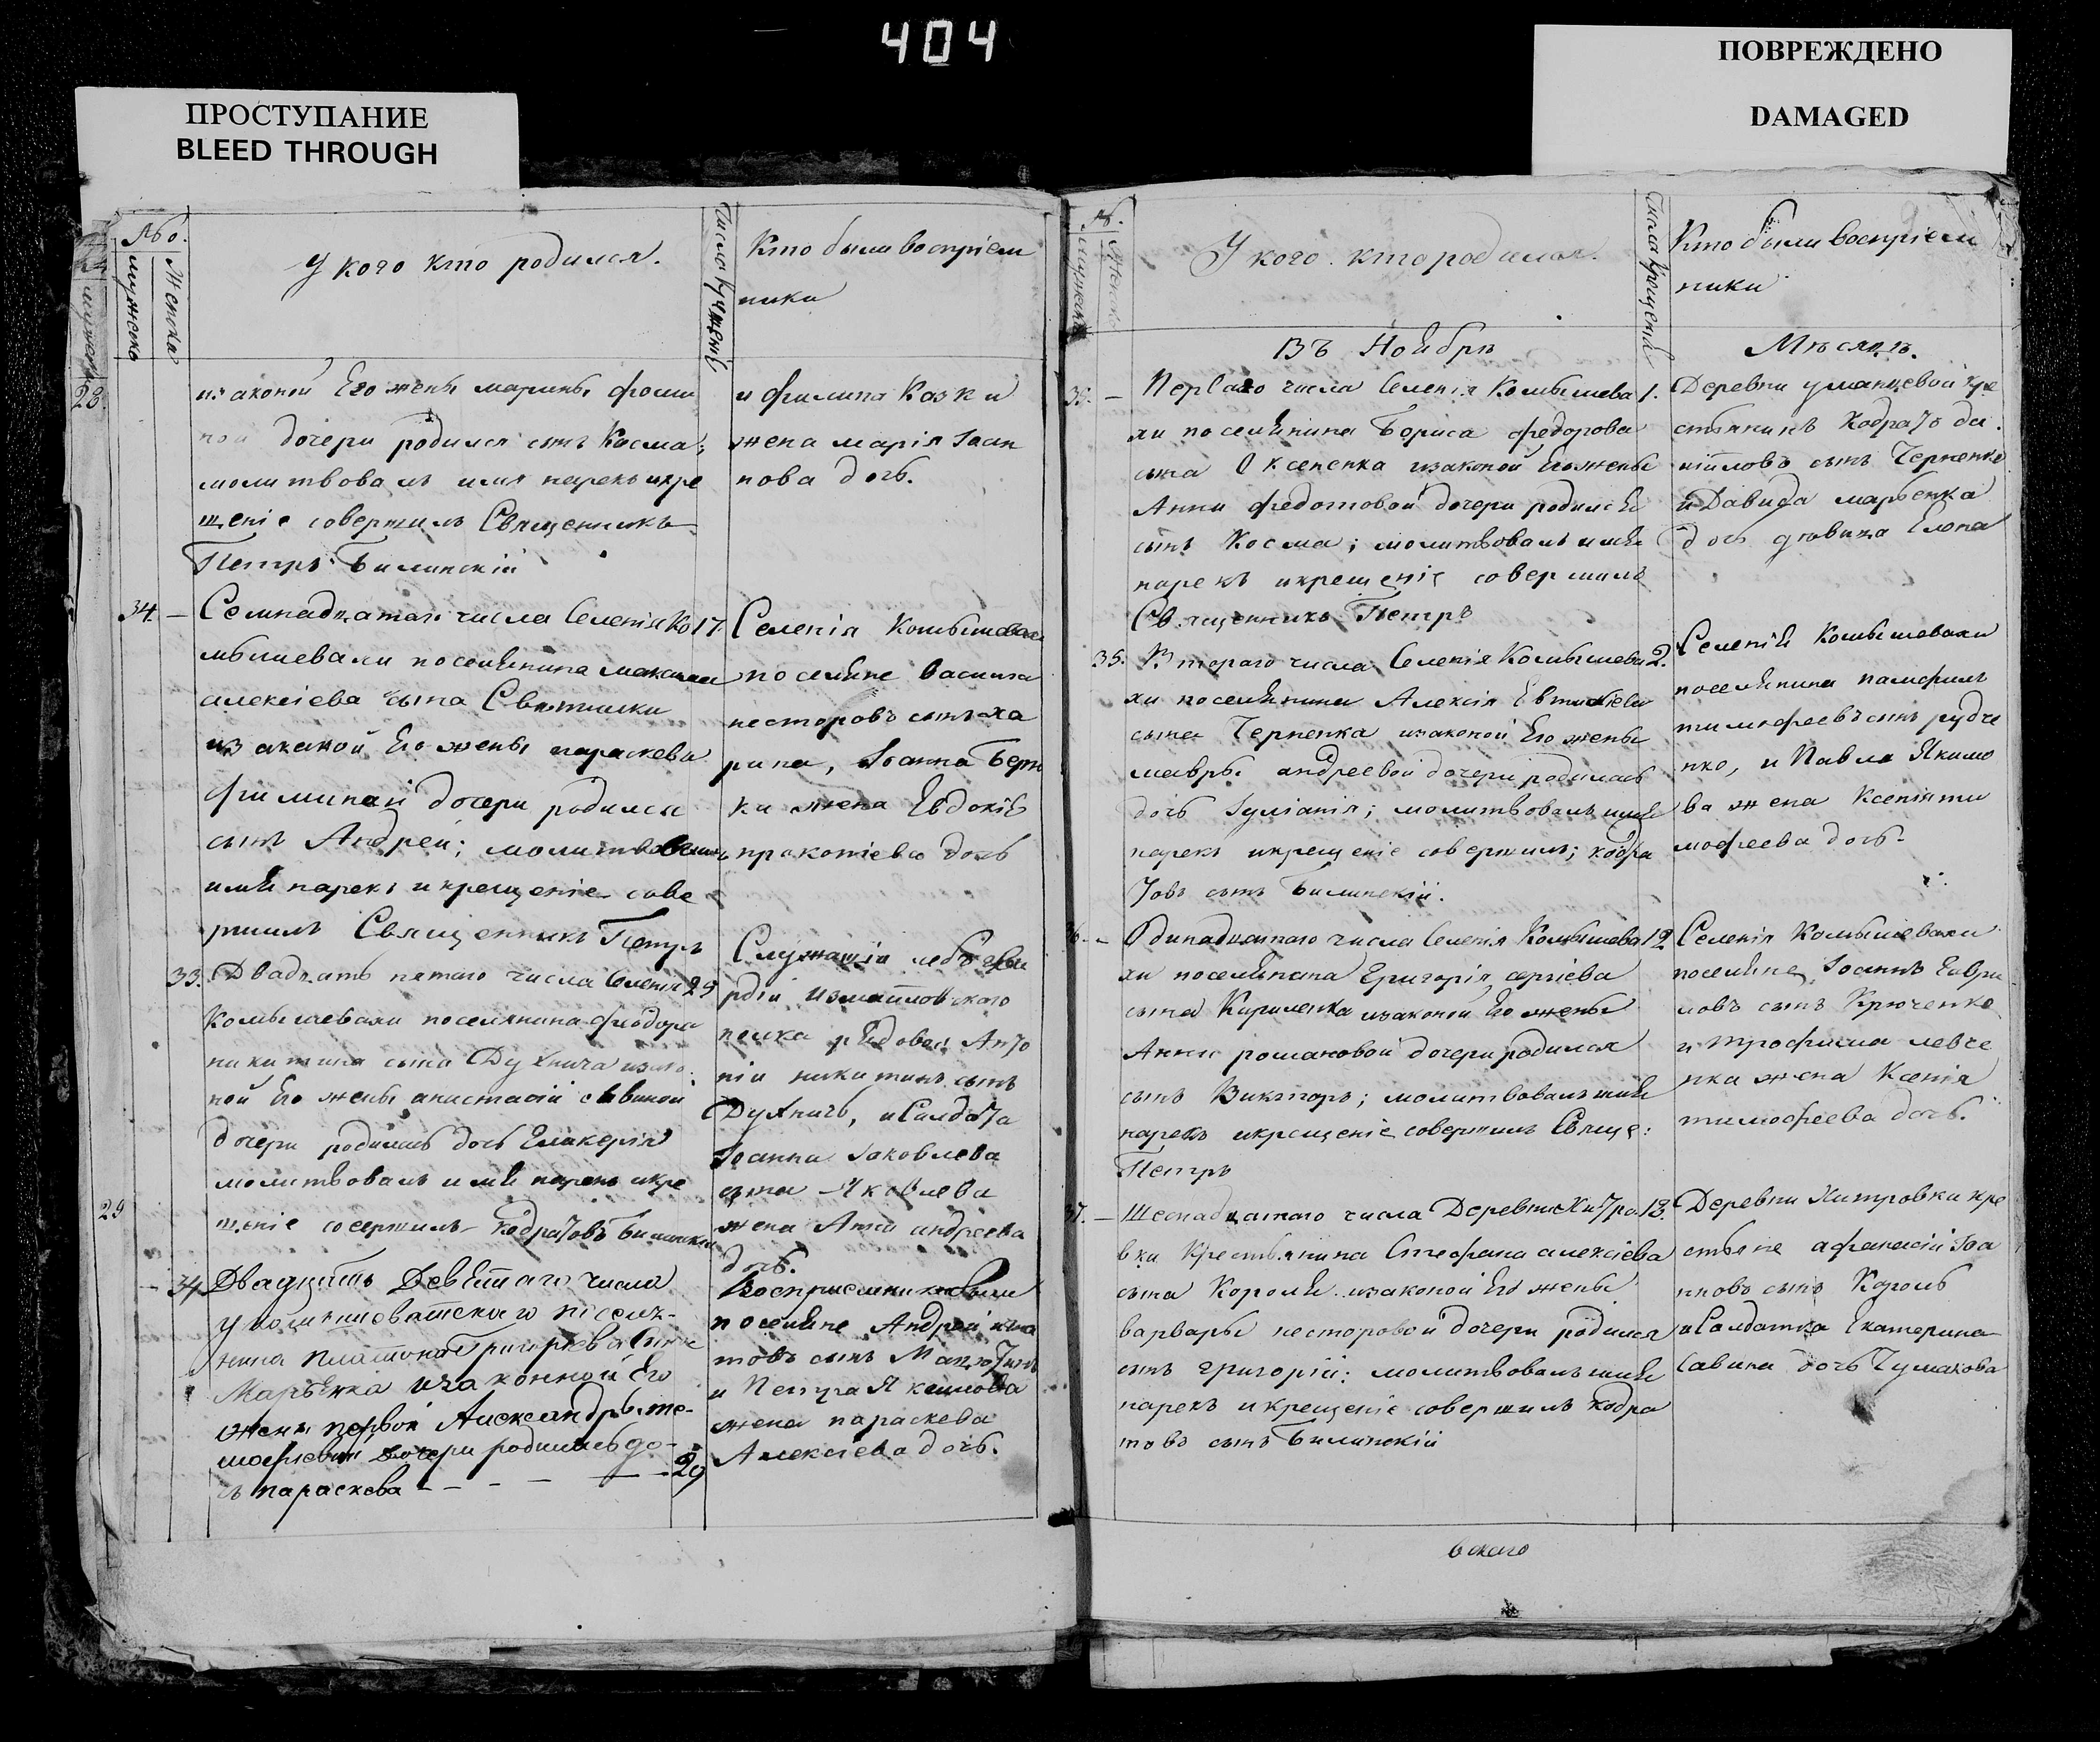 404
ПРОСТУПАНИЕ
BLEED THROUGH
ПОВРЕЖДЕНО
DAMAGED
№
мужеска
Женска
У кого кто родился.
Кто были восприем
ники
28.
изаконой Его жены марины фоми
ной дочери родился сынъ Косма;
молитвовалъ имя нарекъ икре
щеніе совершилъ Священникъ
Петръ Билинскій
и филипа Козки
жена марія Іоан
нова дочь.
34. — Семнадцатаго числа Селенія Ко 17.
мышевахи поселянина максима
алексіева сына
изаконой Его жены параскевы
филиповой дочери родился
сынъ Андрей; молитвовалъ
имя нарекъ и крещеніе сове
ршилъ Священникъ Петръ
Селенія Комышевахи
поселяне василій
несторовъ сынъ ха
рина, Іоанна
жена Евдокія
прокопіева дочь
33. Двадцать пятаго числа Селенія 29
Комышевахи поселянина феодора
никитина сына Духнича изако
ной Его жены анастасіи саввиной
дочери родилась дочь Гликерія
молитвовалъ имя нарекъ икре
щеніе совершилъ Кодратовъ Билинскій
Служащій лебъ гва
рдіи Измайловскаго
полка рядовой
никитинъ сынъ
Духничъ, и Салдата
Іоанна Іаковлева
сына Яковлева
жена Анна андреева
дочь.
29
34 Двадцать Девятаго числа
у посел-
янина Платона Григорьева сына
Марченка изаконной Его
жены первой Александры ти-
мофіевой дочери родилась до-
чь параскева — — — — 29
Восприемники были
поселяне Андрей
товъ сынъ
и Петра Якимова
жена параскева
Алексіева дочь.
№.
мужеска
Женска
У кого кто родился.
числа крещенія
Кто были восприем
ники
Въ Ноябрѣ
Мѣсяцѣ.
35. — Перваго числа Селенія Комышева 1.
хи поселянина Бориса федорова
сына Оксененка изаконой Его жены
Анны федотовой дочери родился
сынъ Косма; молитвовалъ имя
нарекъ икрещеніе совершилъ
Священникъ Петръ
Деревни уманцевой кре
стьянинъ Кодратъ да
ниловъ сынъ Черненко
и Давида марченка
дочь дѣвица Елена
35. Втораго числа Селенія Комышева 2.
хи поселянина Алексія Евтихіева
сына Черненка изаконой Его жены
мавры андреевой дочери родилась
дочь Іуліанія; молитвовалъ имя
нарекъ икрещеніе совершилъ; кодра
товъ сынъ Билинскій.
Селенія Комышевахи
поселянинъ памфилъ
тимофеевъ сынъ рудче
нко, и Павла Якимо
ва жена Ксенія ти
мофеева дочь.
36. — Одинадцатаго числа Селенія Комышева 12
хи поселянина Григорія сергіева
сына Кириленка изаконой Его жены
Анны романовой дочери родился
сынъ Викторъ; молитвовалъ имя
нарекъ икрещеніе совершилъ Свяще:
Петръ
Селенія Комышевахи
поселяне Іоаннъ Гаври
ловъ сынъ Крюченко
и трофима левче
нка жена Ксенія
тимофеева дочь.
37. — Шеснадцатаго числа Деревни Хитро 18.
вки Крестьянина Стефана алексіева
сына Короля изаконой Его жены
варвары несторовой дочери родился
сынъ григорій: молитвовалъ имя
нарекъ икрещеніе совершилъ кодра
товъ сынъ Билинскій
Деревни Хитровки кре
стьяне афанасій Іоа
нновъ сынъ Король
и Салдатка Екатерина
савина дочь Чумакова